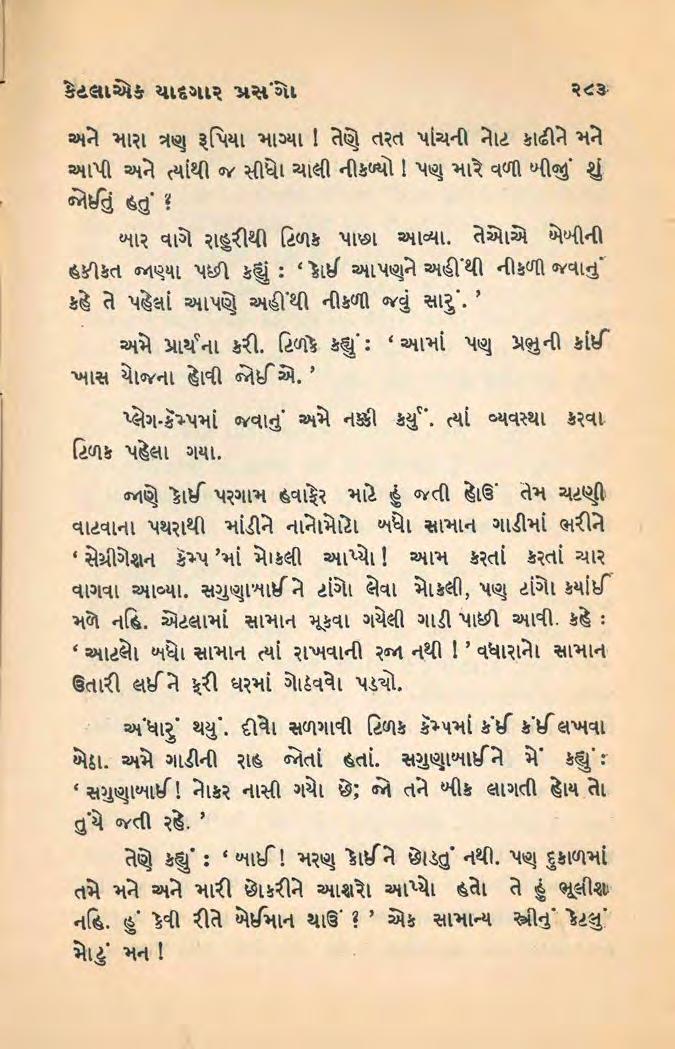 કેટલાએક યાદગાર પ્રસંગો ૨૮૩
અને મારા ત્રણ રૂપિયા માગ્યા ! તેણે તરત પાંચની નોટ કાઢીને મને
આપી અને ત્યાંથી જ સીધો ચાલી નીકળ્યો ! પણ મારે વળી બીજું શું
જોઈતું હતું ?
બાર વાગે રાહુરીથી ટિળક પાછા આવ્યા. તેઓએ બેબીની
હકીકત જાણ્યા પછી કહ્યું : ‘ કોઈ આપણને અહીંથી નીકળી જવાનું
કહે તે પહેલાં આપણે અહીંથી નીકળી જવું સારું. ’
અમે પ્રાર્થના કરી. ટિળકે કહ્યું : ‘ આમાં પણ પ્રભુની કાંઈ
ખાસ યોજના હોવી જોઈએ. ’
પ્લેગ-કૅમ્પમાં જવાનું અમે નક્કી કર્યું. ત્યાં વ્યવસ્થા કરવા
ટિળક પહેલા ગયા.
જાણે કોઈ પરગામ હવાફેર માટે હું જતી હોઉં તેમ ચટણી
વાટવાના પથરાથી માંડીને નાનોમોટો બધો સામાન ગાડીમાં ભરીને
‘ સેગ્રીગેશન કૅમ્પ ’માં મોકલી આપ્યો ! આમ કરતાં કરતાં ચાર
વાગવા આવ્યા. સગુણાબાઈને ટાંગો લેવા મોકલી, પણ ટાંગો કયાંઈ
મળે નહિ. એટલામાં સામાન મૂકવા ગયેલી ગાડી પાછી આવી. કહે :
‘ આટલો બધો સામાન ત્યાં રાખવાની રજા નથી ! ’ વધારાનો સામાન
ઉતારી લઈને ફરી ઘરમાં ગોઠવવો પડયો.
અંધારું થયું. દીવો સળગાવી ટિળક કૅમ્પમાં કંઈ કંઈ લખવા
બેઠા. અમે ગાડીની રાહ જોતાં હતાં. સગુણાબાઈને મેં કહ્યું :
‘ સગુણાબાઈ ! નોકર નાસી ગયો છે; જો તને બીક લાગતી હોય તો
તુંયે જતી રહે. ’
તેણે કહ્યું : ‘ બાઈ ! મરણ કોઈને છોડતું નથી. પણ દુકાળમાં
તમે મને અને મારી છોકરીને આશરો આપ્યો હતો તે હું ભૂલીશ
નહિ. હું કેવી રીતે બેઈમાન થાઉં ? ’ એક સામાન્ય સ્ત્રીનું કેટલું
મોટું મન !